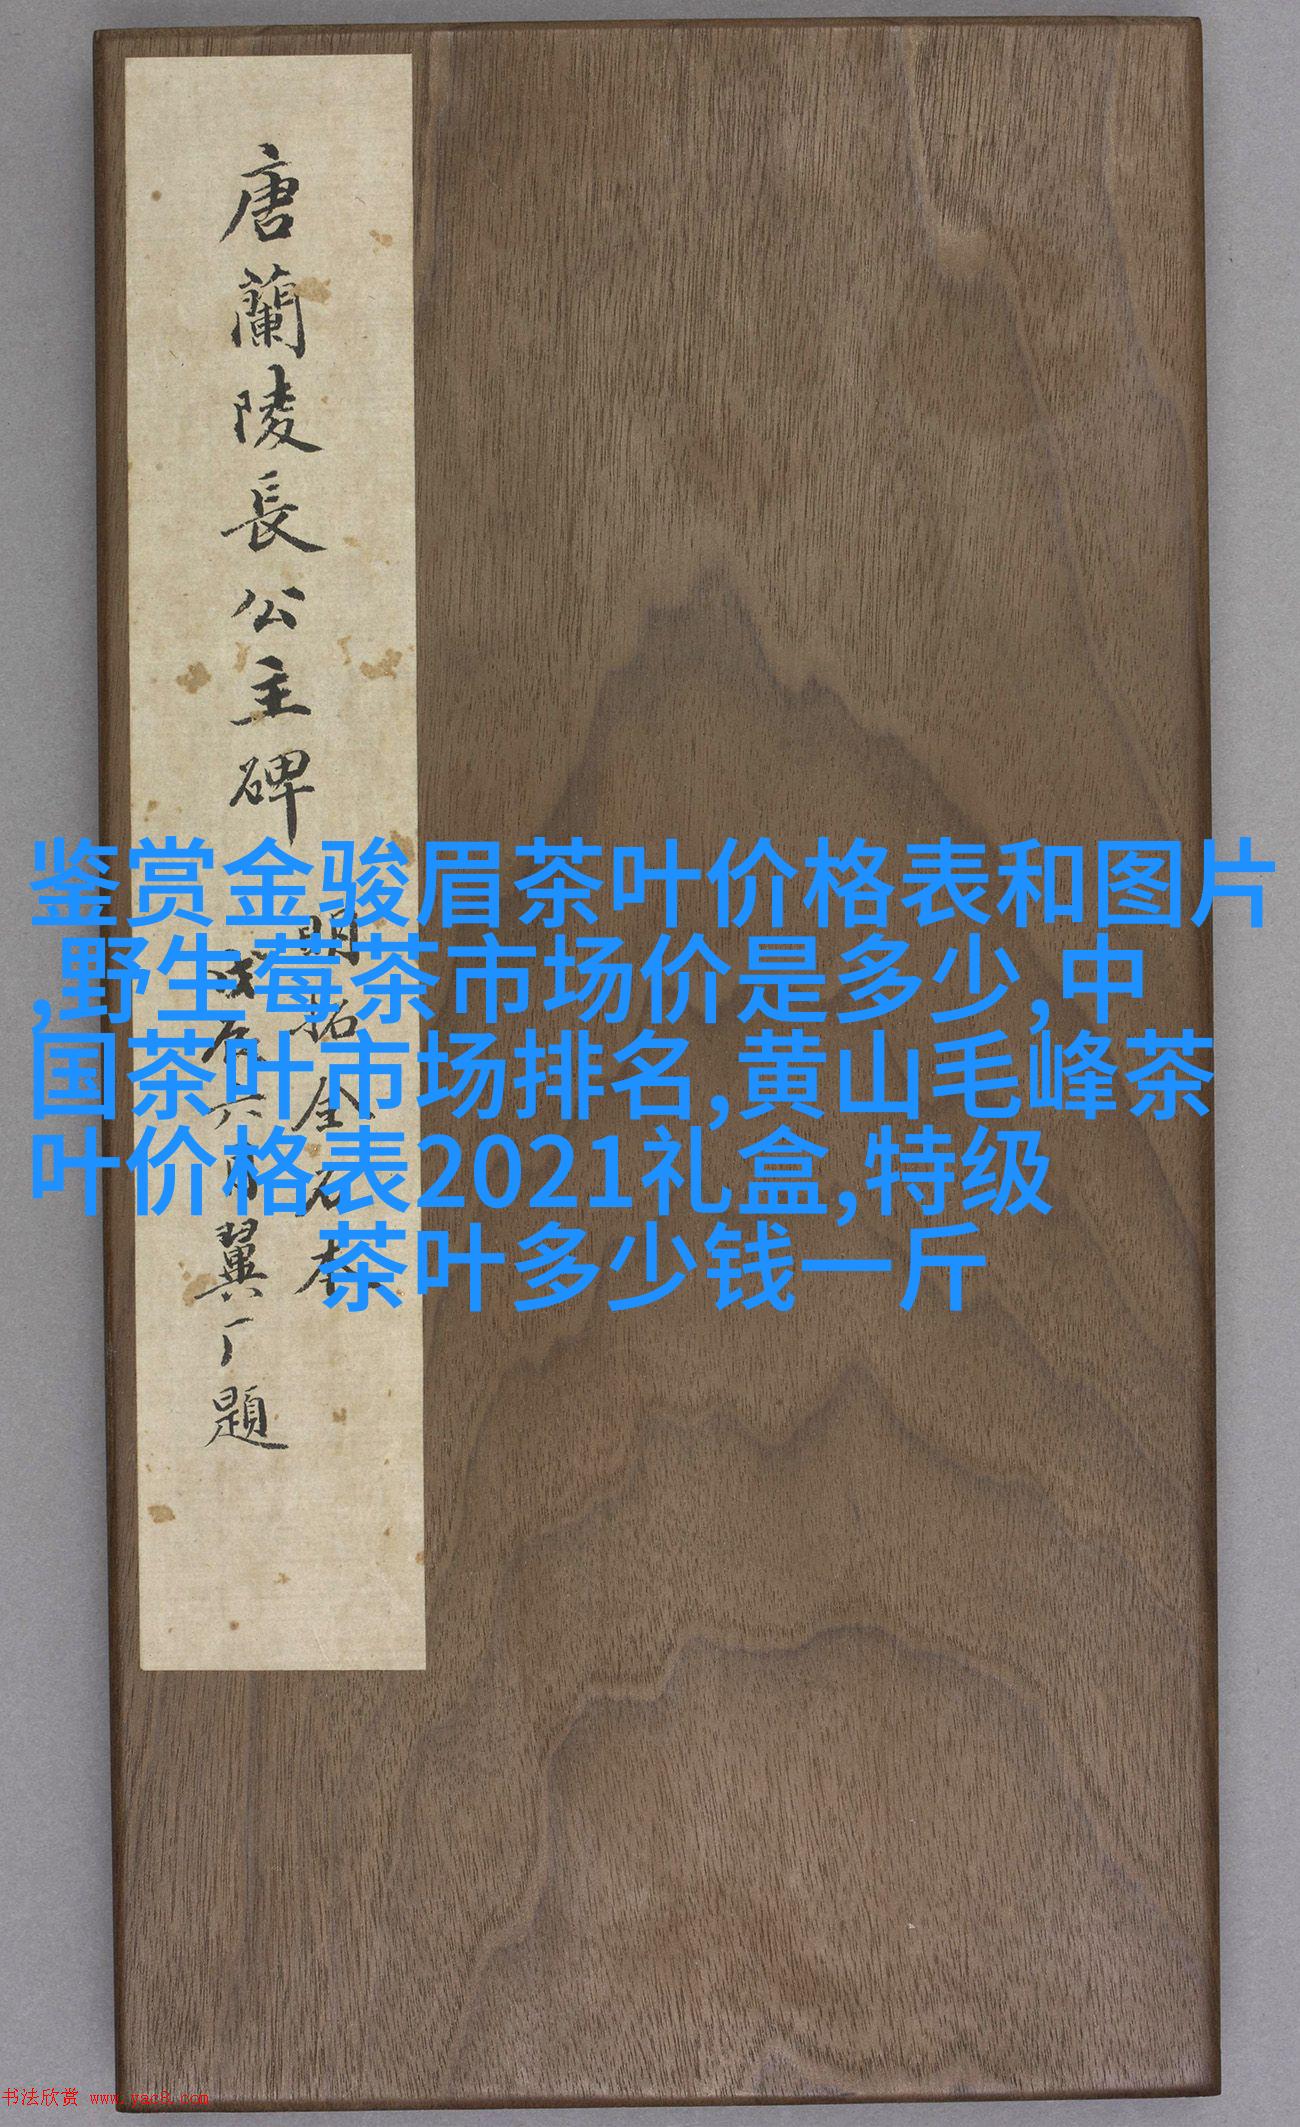 唐蘭陵長公主碑
明拓金石本
翼厂題
鉴赏金骏眉茶叶价格表和图片
,野生莓茶市场价是多少,中
国茶叶市场排名,黄山毛峰茶
叶价格表2021礼盒,特级
茶叶多少钱一斤
书法欣赏 www.yac8.com